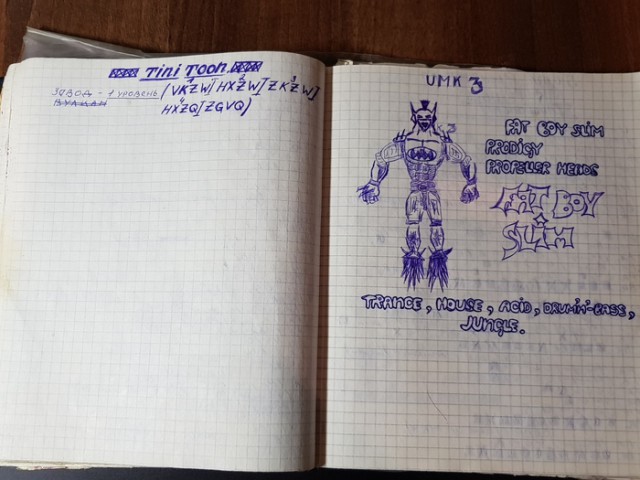 Tini Toon.
ЗАВОД - 1 УРОВЕНЬ (VKZW][HXZW][ZKZW]
ВУЛКАН HXZQ][ZGVQ)
UMK 3
FAT BOY SLIM
PRODIGY
PROPELLER HEADS
FAT BOY
SLiM
TRANCE, HOUSE, ACID, DRUM'N'-BASS,
JUNGLE.